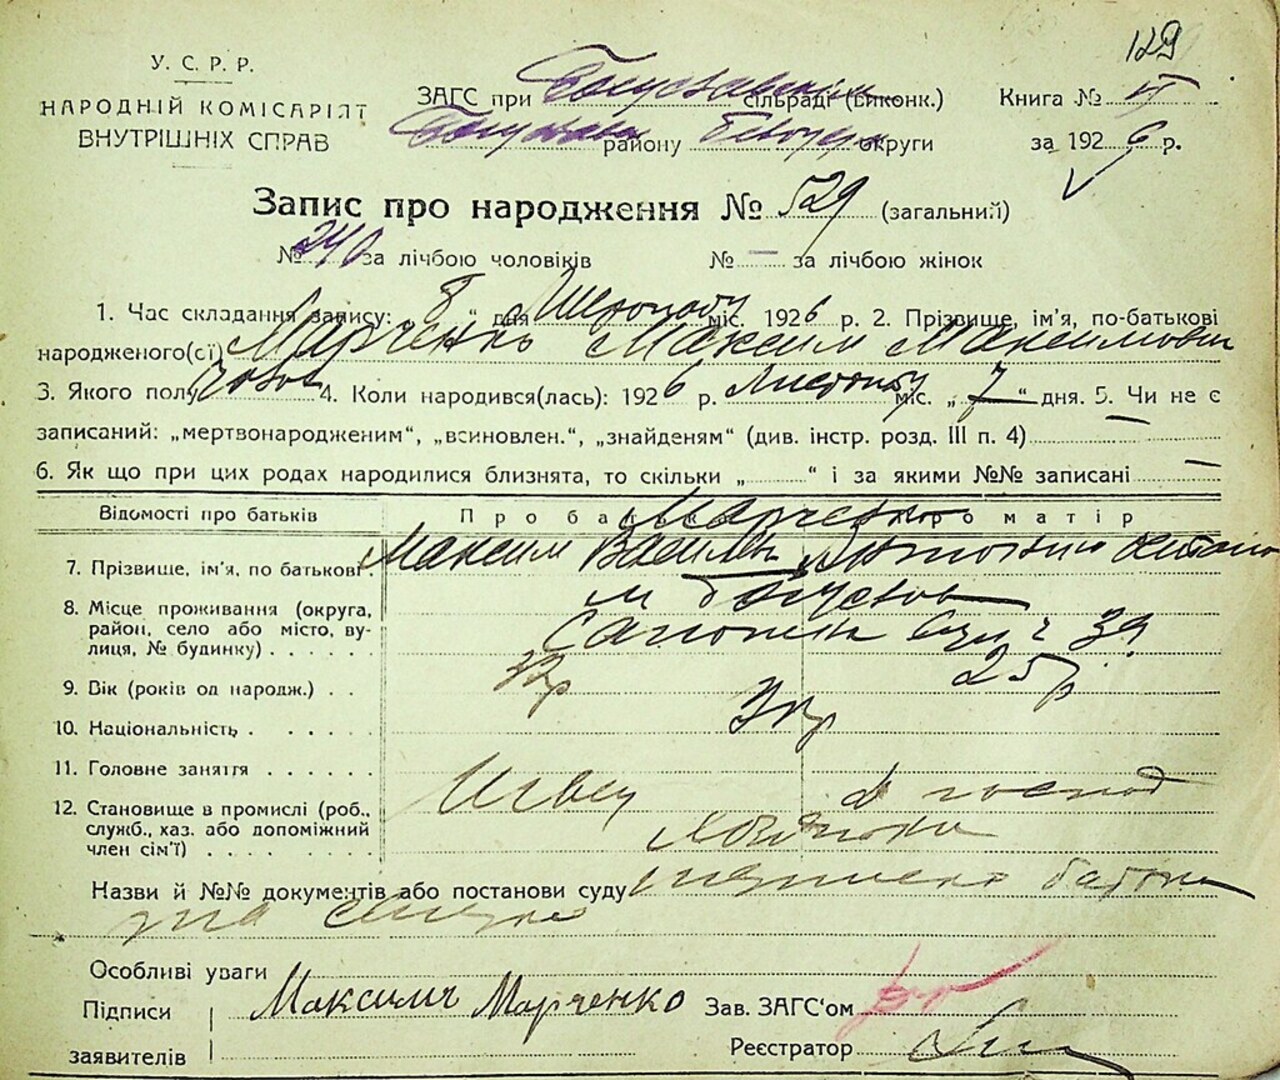 129
У. С. Р. Р.
НАРОДНІЙ КОМІСАРІЯТ
ВНУТРІШНІХ СПРАВ
ЗАГС при Богуславськім сільраді (виконк.)
району округи
Книга № VI
за 1926 р.
Запис про народження № 529 (загальний)
№ 240 за лічбою чоловіків № — за лічбою жінок
1. Час складання запису: „ 8 “ дня Листопаду міс. 1926 р. 2. Прізвище, ім'я, по-батькові
народженого(ої) Марченко Максим Максимович
3. Якого полу чолов 4. Коли народився(лась): 1926 р. Листопаду міс. „ 7 “ дня. 5. Чи не є
записаний: „мертвонародженим“, „всиновлен.“, „знайденям“ (див. інстр. розд. III п. 4) —
6. Як що при цих родах народилися близнята, то скільки „ “ і за якими №№ записані —
Відомості про батьків Про батька Про матір
Марченко
7. Прізвище, ім'я, по батькові. Максим Василів
8. Місце проживання (округа, район, село або місто, вулиця, № будинку) м Богуслав
39
9. Вік (років од народж.) 25 р
10. Національність Укр
11. Головне заняття Швец д господ
12. Становище в промислі (роб., служб., хаз. або допоміжний член сім'ї)
Назви й №№ документів або постанови суду
Особливі уваги
Підписи Марченко Зав. ЗАГС'ом
заявителів Реєстратор